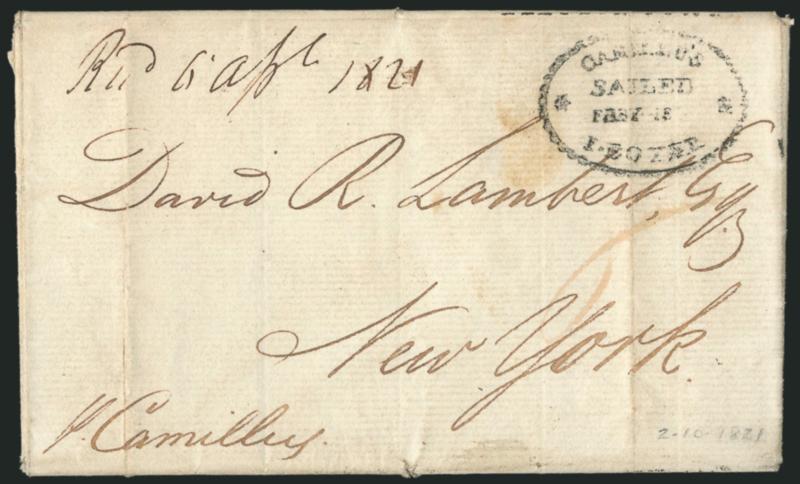 Recd 6 Apl 1821
CAMILLUS
SAILED
David R. Lambert, Esqr
New York
p. Camillus
2-10-1821